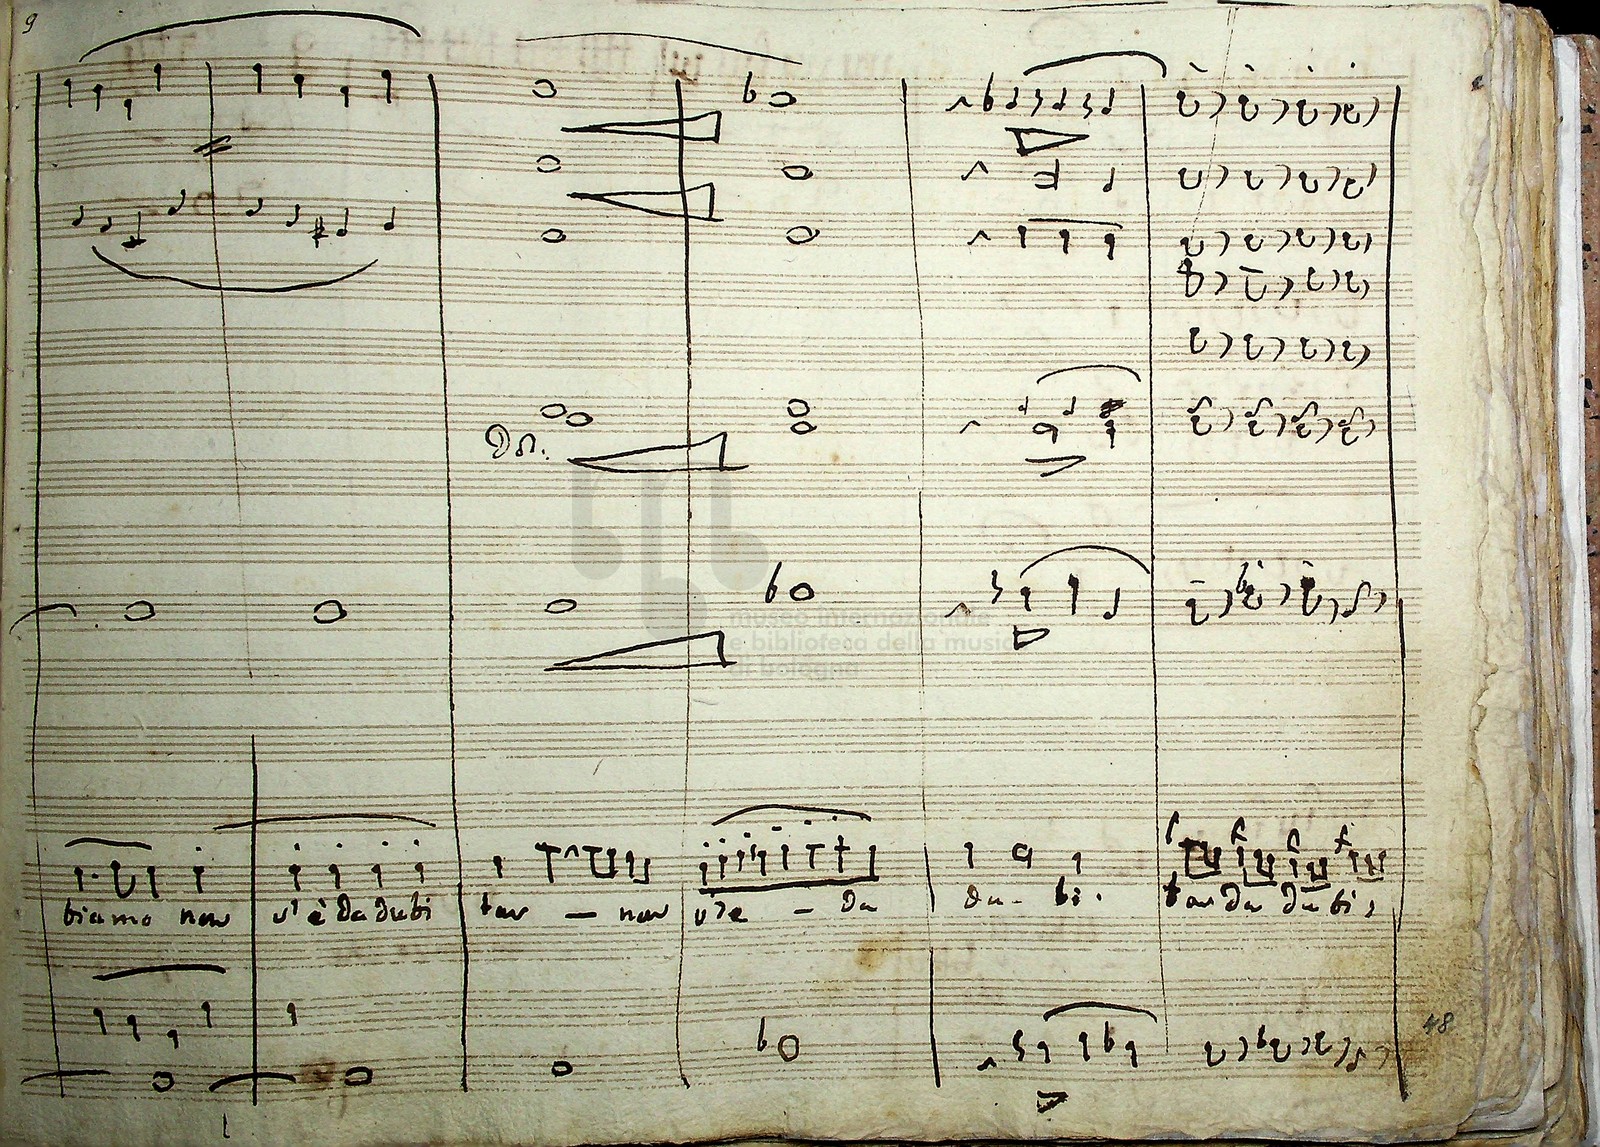 9
museo internazionale
e biblioteca della musica
di bologna
biamo non v'è da dubi tar — non v'è — da du- bi. tar da dubi,
48